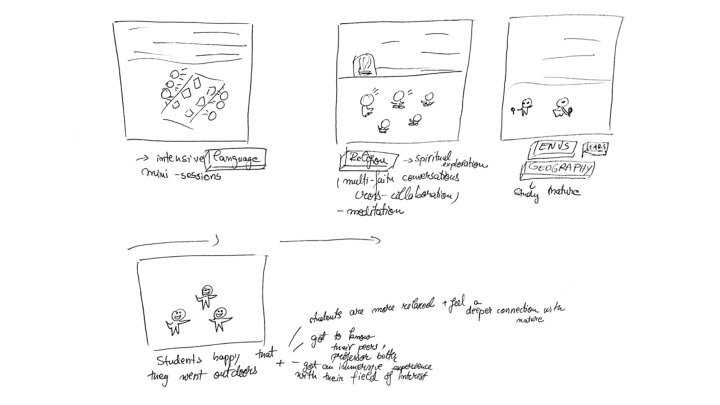 → intensive language
mini-sessions
Religion → spiritual
exploration
(multi-faith conversations
cross-collaboration)
- meditation
ENVS
GEOGRAPHY
study nature
Students happy that
they went outdoors +
students are more relaxed + feel a
deeper connection with
nature
got to know
their peers +
professor better
- got an immersive experience
with their field of interest